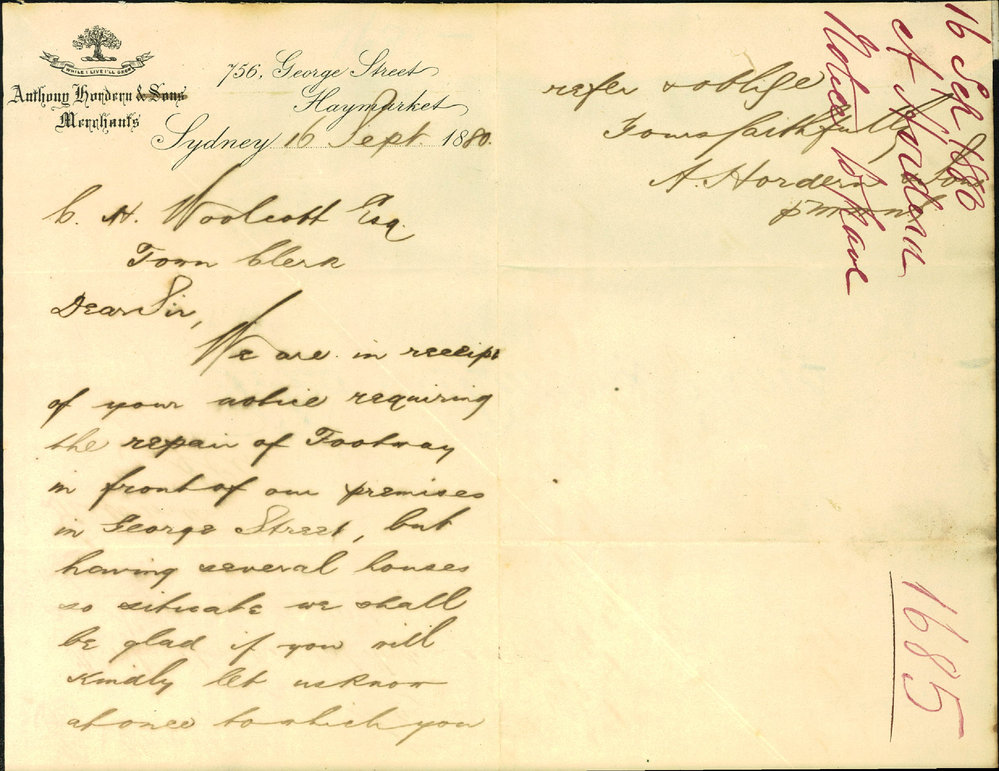 WHILE I LIVE I'LL GROW
Anthony Hordern & Sons
Merchants
756, George Street
Haymarket
Sydney 16 Sept. 1880.
C. H. Woolcott Esq.
Town Clerk
Dear Sir,
We are in receipt
of your notice requiring
the repair of Footway
in front of our premises
in George Street, but
having several houses
so situate we shall
be glad if you will
kindly let us know
at once to which you
refer & oblige
Yours faithfully
A. Hordern & Son
16 Sep 1880
A Hordern
Notice to Pave
1685